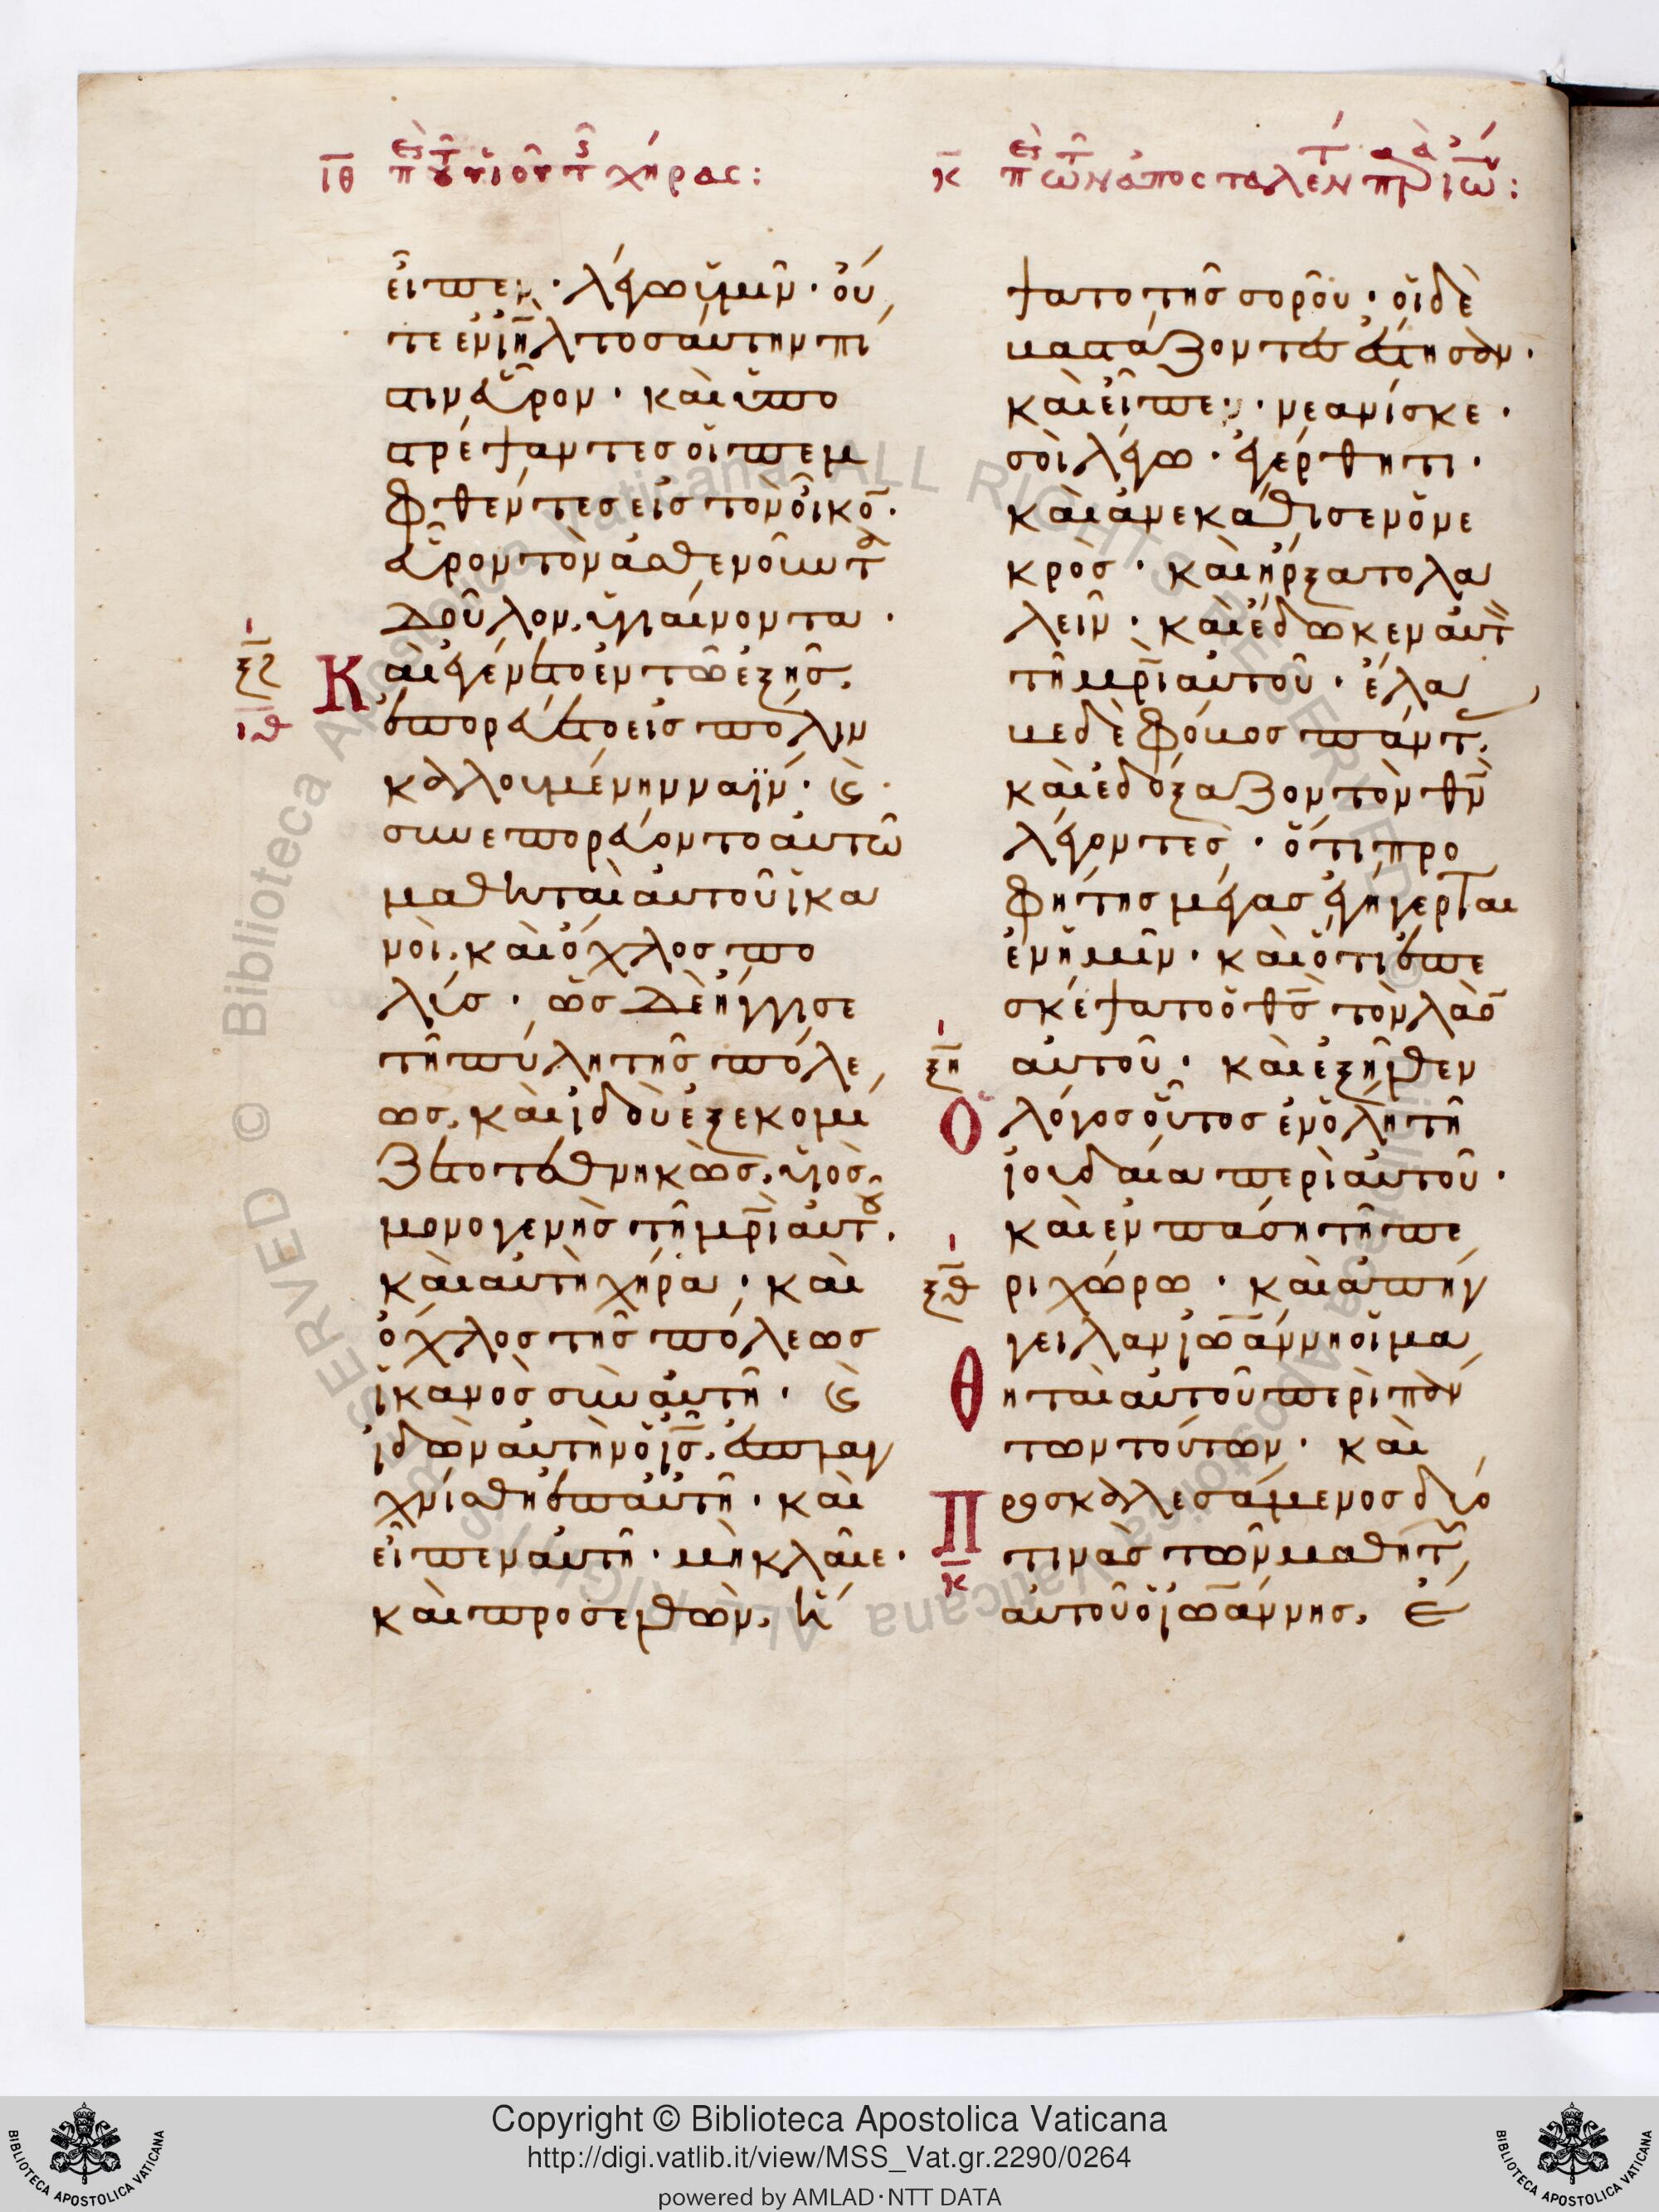 ιθ περὶ τοῦ υἱοῦ τῆς χήρας:
εἶπεν· λέγω ὑμῖν· οὔ
τε ἐν ἰηλ τοσαύτην πί
στιν εὗρον· καὶ ὑπο
στρέψαντες οἱ πεμ
φθέντες εἰς τὸν οἶκο̅·
εὗρον τὸν ἀσθενοῦντα
δοῦλον, ὑγιαίνοντα·
ξζ
ιθ
Καὶ ἐγένετο ἐν τῶ ἑξῆς,
ἐπορεύετο εἰς πόλιν
καλουμένην ναΐν· καὶ
συνεπορεύοντο αὐτῶ
μαθηταὶ αὐτοῦ ἱκα
νοὶ, καὶ ὄχλος πο
λύς· ὡς δὲ ἤγγισε
τῆ πύλη τῆς πόλε
ως, καὶ ἰδοὺ ἐξεκομί
ζετο τεθνηκὼς, υἱὸς
μονογενὴς τῆ μρ̅ὶ αὐτοῦ·
καὶ αὐτὴ χήρα· καὶ
ὄχλος τῆς πόλεως
ἱκανὸς σὺν αὐτῆ· καὶ
ἰδὼν αὐτὴν ὁ ι̅ς̅, ἐσπλαγ
χνίσθη ἐπ' αὐτῆ· καὶ
εἶπεν αὐτῆ· μὴ κλαῖε·
καὶ προσελθὼν, ἥ
κ περὶ τῶν ἀποσταλέντων παρὰ ἰωάννου:
ψατο τῆς σοροῦ· οἱ δὲ
βαστάζοντες ἔστησαν·
καὶ εἶπεν· νεανίσκε·
σοὶ λέγω· ἐγέρθητι·
καὶ ἀνεκάθισεν ὁ νε
κρὸς· καὶ ἤρξατο λα
λεῖν· καὶ ἔδωκεν αὐτὸν
τῆ μρ̅ὶ αὐτοῦ· ἔλα
βε δὲ φόβος πάντας·
καὶ ἐδόξαζον τὸν θ̅ν̅
λέγοντες· ὅτι προ
φήτης μέγας ἐγήγερται
ἐν ἡμῖν· καὶ ὅτι ἐπε
σκέψατο ὁ θ̅ς̅ τὸν λαὸ̅
ξη
αὐτοῦ· καὶ ἐξῆλθεν
Ὁ λόγος οὗτος ἐν ὅλη τῆ
ἰουδαία περὶ αὐτοῦ·
καὶ ἐν πάση τῆ πε
ξθ
ριχώρω· καὶ ἀπήγ
γειλαν ἰωάννη οἱ μα
Θηταὶ αὐτοῦ περὶ πάν
των τούτων· καὶ
Προσκαλεσάμενος δύο
κ
τινὰς τῶν μαθητῶν
αὐτοῦ ὁ ἰωάννης, ἔ
Copyright © Biblioteca Apostolica Vaticana
http://digi.vatlib.it/view/MSS_Vat.gr.2290/0264
powered by AMLAD·NTT DATA
BIBLIOTECA APOSTOLICA VATICANA
BIBLIOTECA APOSTOLICA VATICANA
© Biblioteca Apostolica Vaticana ALL RIGHTS RESERVED © Biblioteca Apostolica Vaticana ALL RIGHTS RESERVED